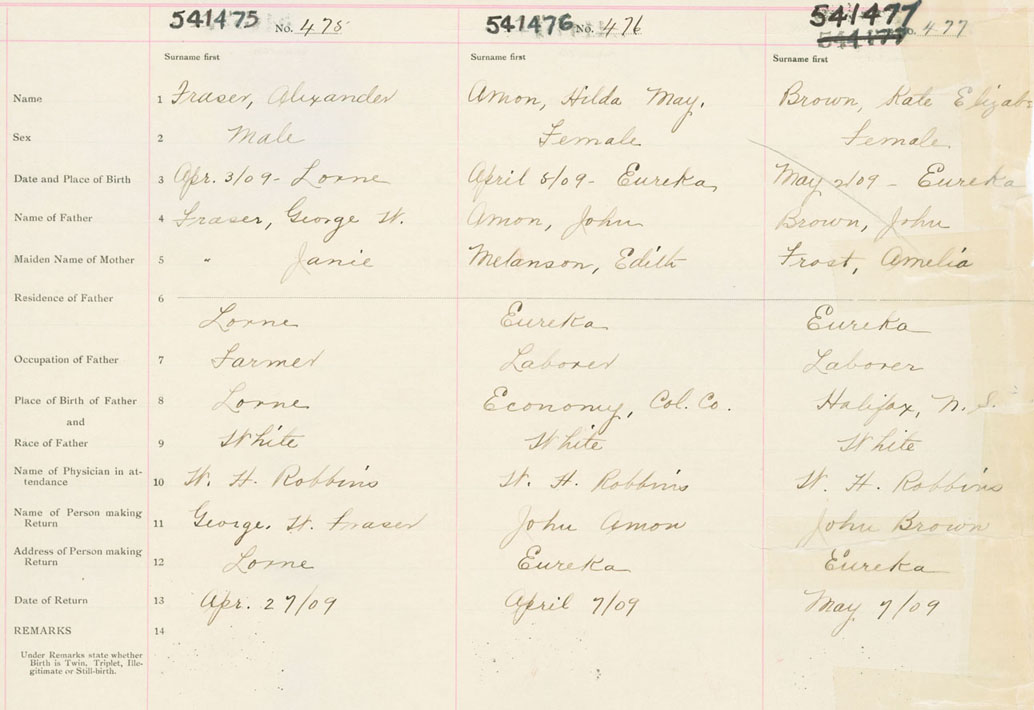 541475 No. 475 541476 No. 476 541477 No. 477
541477
Surname first Surname first Surname first
Name 1 Fraser, Alexander Amon, Hilda May. Brown, Kate Elizab
Sex 2 Male Female Female
Date and Place of Birth 3 Apr. 3/09- Lorne April 5/09- Eureka May 2/09 - Eureka
Name of Father 4 Fraser, George W. Amon, John Brown, John
Maiden Name of Mother 5 " Janie Melanson, Edith Frost, Amelia
Residence of Father 6
Lorne Eureka Eureka
Occupation of Father 7 Farmer Laborer Laborer
Place of Birth of Father 8 Lorne Economy, Col. Co. Halifax, N. S.
and
Race of Father 9 White White White
Name of Physician in at-
tendance 10 W. H. Robbins W. H. Robbins W. H. Robbins
Name of Person making
Return 11 George. W. Fraser John Amon John Brown
Address of Person making
Return 12 Lorne Eureka Eureka
Date of Return 13 Apr. 27/09 April 7/09 May 7/09
REMARKS 14
Under Remarks state whether
Birth is Twin, Triplet, Ille-
gitimate or Still-birth.